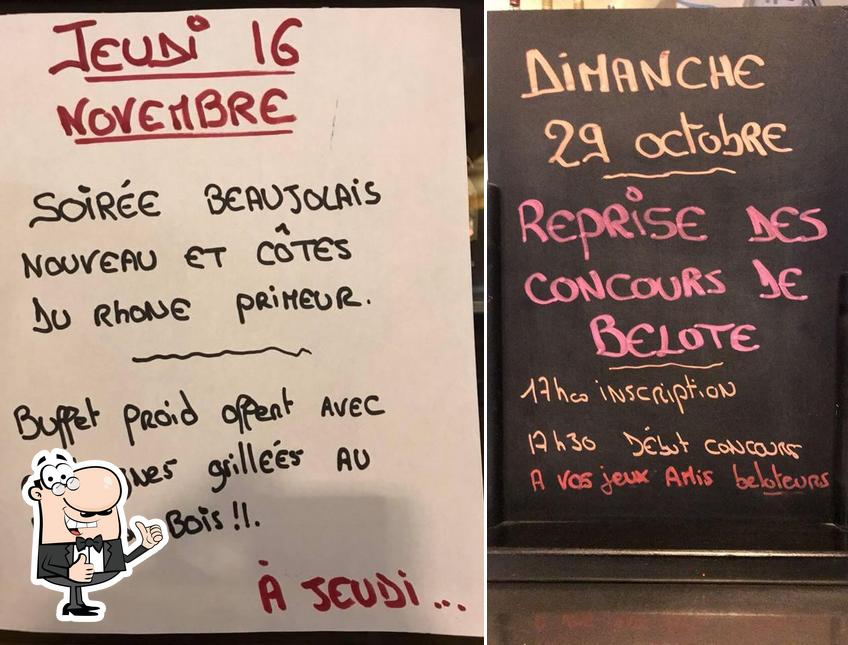 JEUDI 16
NOVEMBRE
SOIRÉE BEAUJOLAIS
NOUVEAU ET CÔTES
DU RHONE PRIMEUR.
Buffet froid offert AVEC
grilleés AU
BOIS !!.
À JEUDI ...
DIMANCHE
29 octobre
REPRISE DES
CONCOURS DE
BELOTE
17h00 inscription
17h30 Début concours
A vos jeux Amis beloteurs